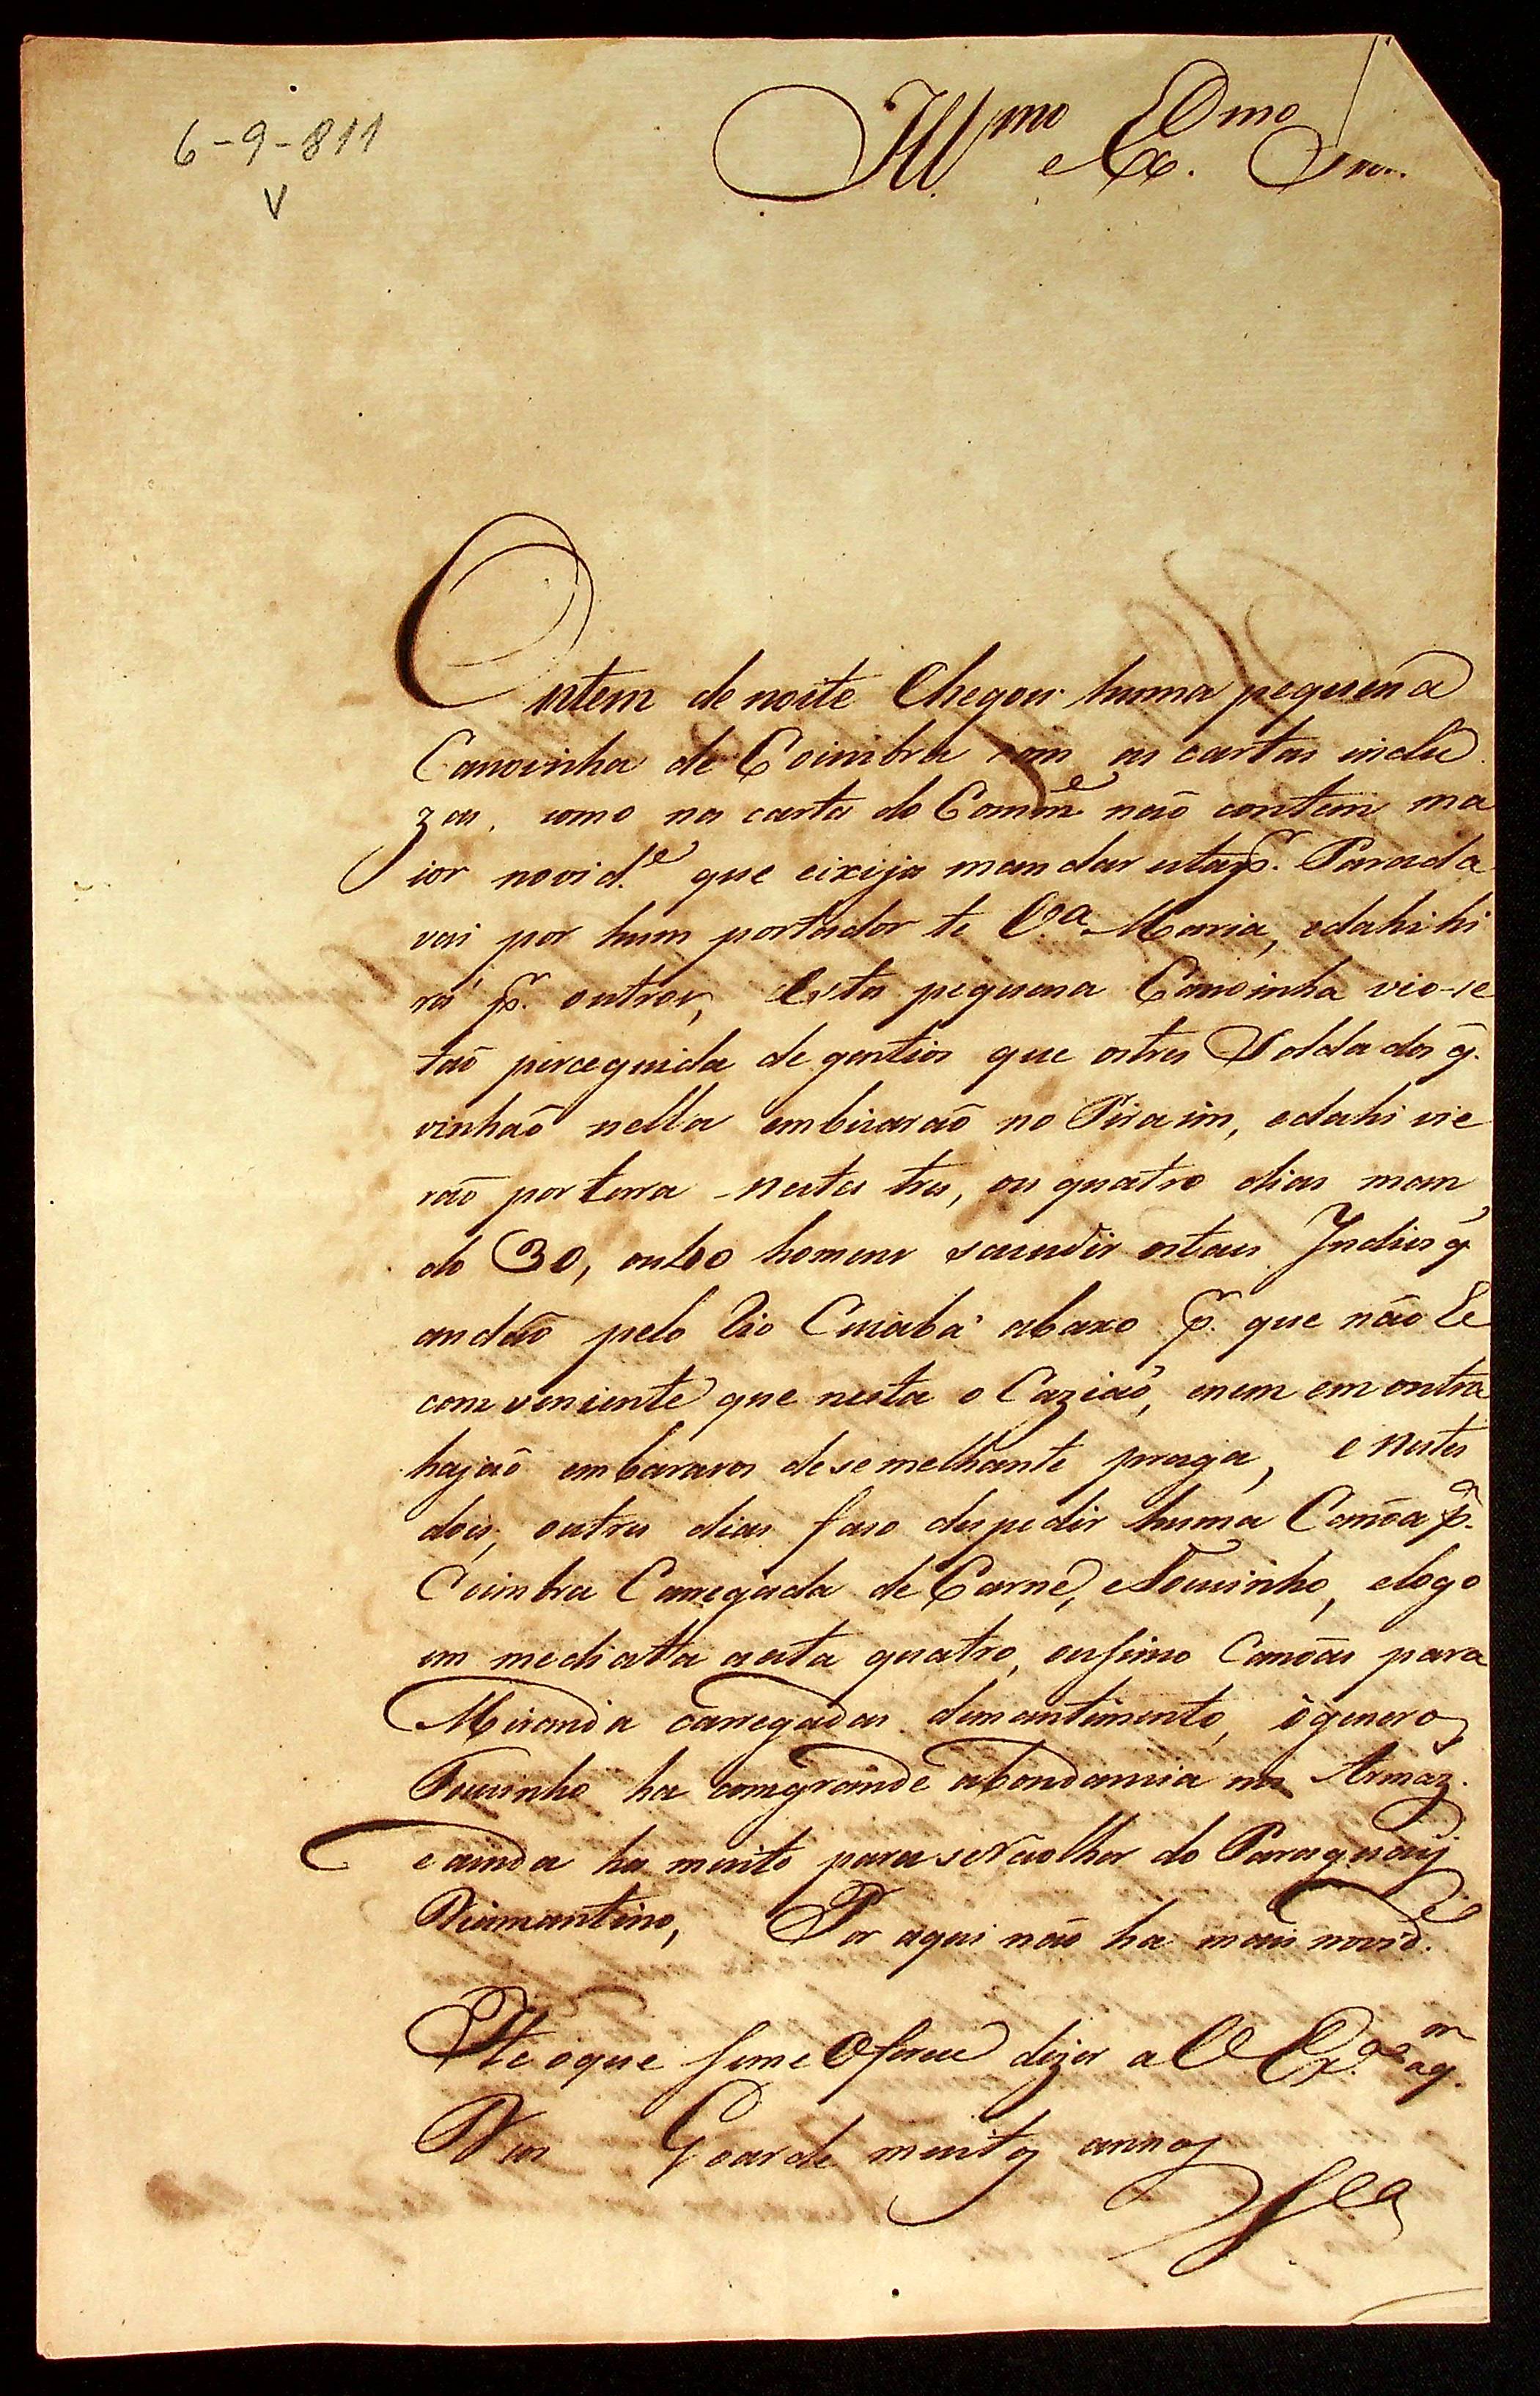 6-9-811
V
Ill.mo e Ex.mo Snr.
Ontem de noite Chegou huma pequena
Canoinha de Coimbra com as cartas inclu
zas, como na carta do Comm.e não contem ma
ior novid.e que eixija mandar esta p.r Parada
vai por hum portador te V.a Maria, e dahi hi
rá p.r outros, Esta pequena Canoinha vio-se
taõ perceguida de gentios que os tres Soldados q.
vinhaõ nella embicaraõ no Piraim, e dahi vie
raõ por terra - nestes tres, ou quatro dias man
do 30, ou 40 homens sacudir estes Indios q.
andaõ pelo Rio Cuiabá abaxo p.r que não he
conveniente que nesta o Caziaõ, e nem em outra
hajaõ embarasos de semelhante praga, e nestes
dois, outres dias faso despedir huma Canôa p.a
Coimbra Carregada de Carne, e Toucinho, e logo
im mediatta a esta quatro, ou sinco Canôas para
Miranda carregadas de mantimento, o genero
Toucinho ha com grande abondancia nos Armaz.
e ainda ha muito para se recolher do Paraguay
Diamantino, Por aqui não ha mais novid.e
He o que se me Oferece dizer a V Ex.a a q.m
Deos Goarde muitos annos